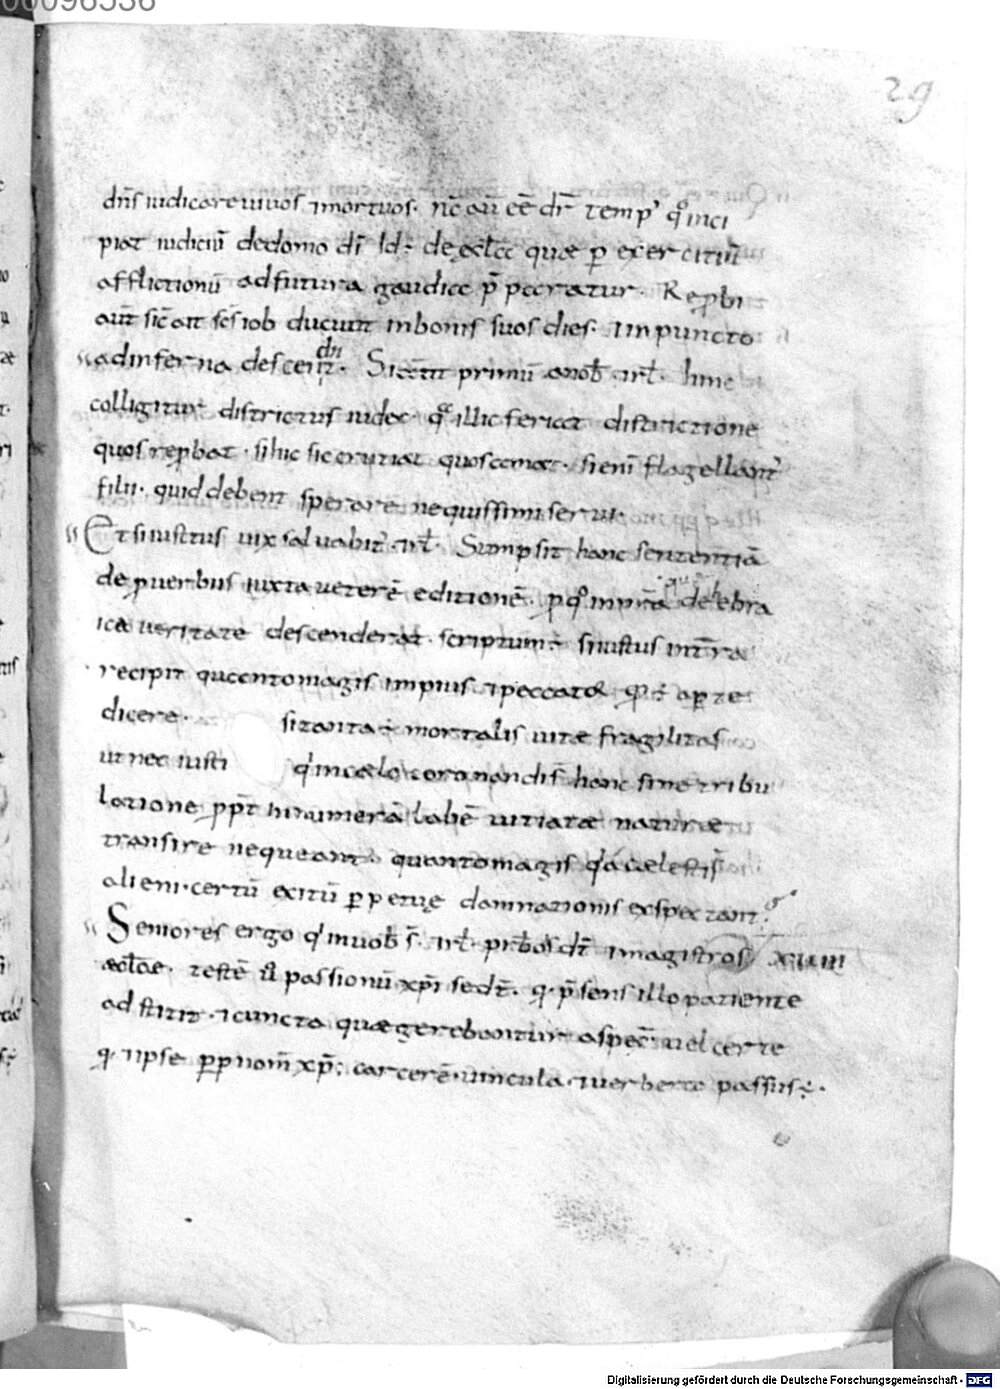 00096536
29
dn̄s iudicare uiuos ⁊mortuos. nc̄ aū eē dr̄ temp' qͦ inci
piat iudiciū dedomo dī Id÷ de ęcl̄a quae p̄ exercitiū
afflictionū adfutura gaudia p̄paratur. Rep̱bi
aūt sic̄ ait sc̄s iob ducunt inbonis suos dies. ⁊inpuncto
adinferna descendn̄t. Si aūt primū anob̄ .irl̄. hinc
colligitur districtus iudex. qͣ illic feriat districtione
quos rep̱bat. si hic sic cruciat quos amat. si enī flagellant᷑
filii. quid debent sperare nequissimi serui.
Et si iustus uix saluabit᷑ .irl̄. Sumpsit hanc sententiā
de p̱uerbiis iuxta ueterē editionē. p̱ qͦ innrā quę dehebra
ica ueritate descenderat. scriptum÷ si iustus intr̄ra
recipit quanto magis impius ⁊peccator qđ÷ aperte
dicere. si tanta÷ mortalis uitae fragilitas
ut nec iusti q' incaelo coronandi s̄ hanc sine tribu
latione p̱pt̄ innumerā labē uitiatae naturae
transire nequeant. quanto magis q' a caelestis̄
alieni. certū exitū p̱petuę damnationis exspectant.
Seniores ergo q' inuob̄ s̄ .irl̄. prb̄os dt̄ ⁊magistros
aecl̄ae. testē u̅ passionū xp̄i se dt̄. q. p̄sens illo patiente
adstitit. ⁊cuncta quae gerebantur aspex̄ uel certe
q. ⁊ipse p̱p nom̄ xp̄i carcerē. uincula. ⁊uerbera passus÷.
Digitalisierung gefördert durch die Deutsche Forschungsgemeinschaft - DFG